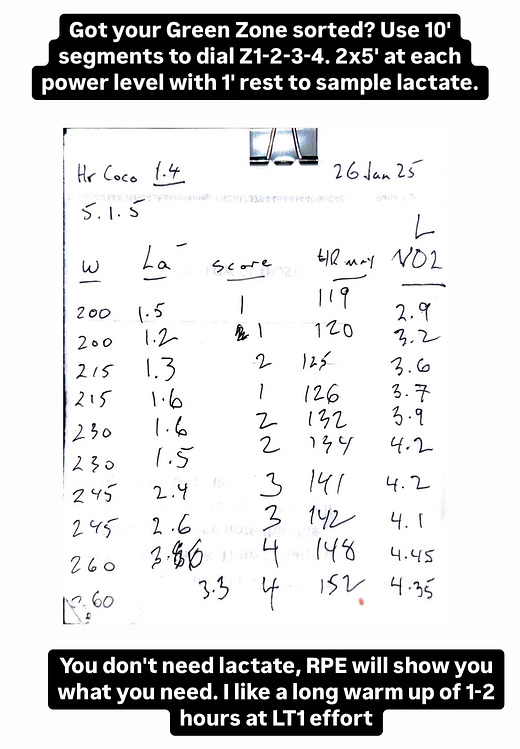 Got your Green Zone sorted? Use 10'
segments to dial Z1-2-3-4. 2x5' at each
power level with 1' rest to sample lactate.
Hr Coco 1.4 26 Jan 25
5.1.5
L
W La⁻ score HR max VO2
200 1.5 1 119 2.9
200 1.2 1 120 3.2
215 1.3 2 125 3.6
215 1.6 1 126 3.7
230 1.6 2 132 3.9
230 1.5 2 134 4.2
245 2.4 3 141 4.2
245 2.6 3 142 4.1
260 4 148 4.45
260 3.3 4 152 4.35
You don't need lactate, RPE will show you
what you need. I like a long warm up of 1-2
hours at LT1 effort